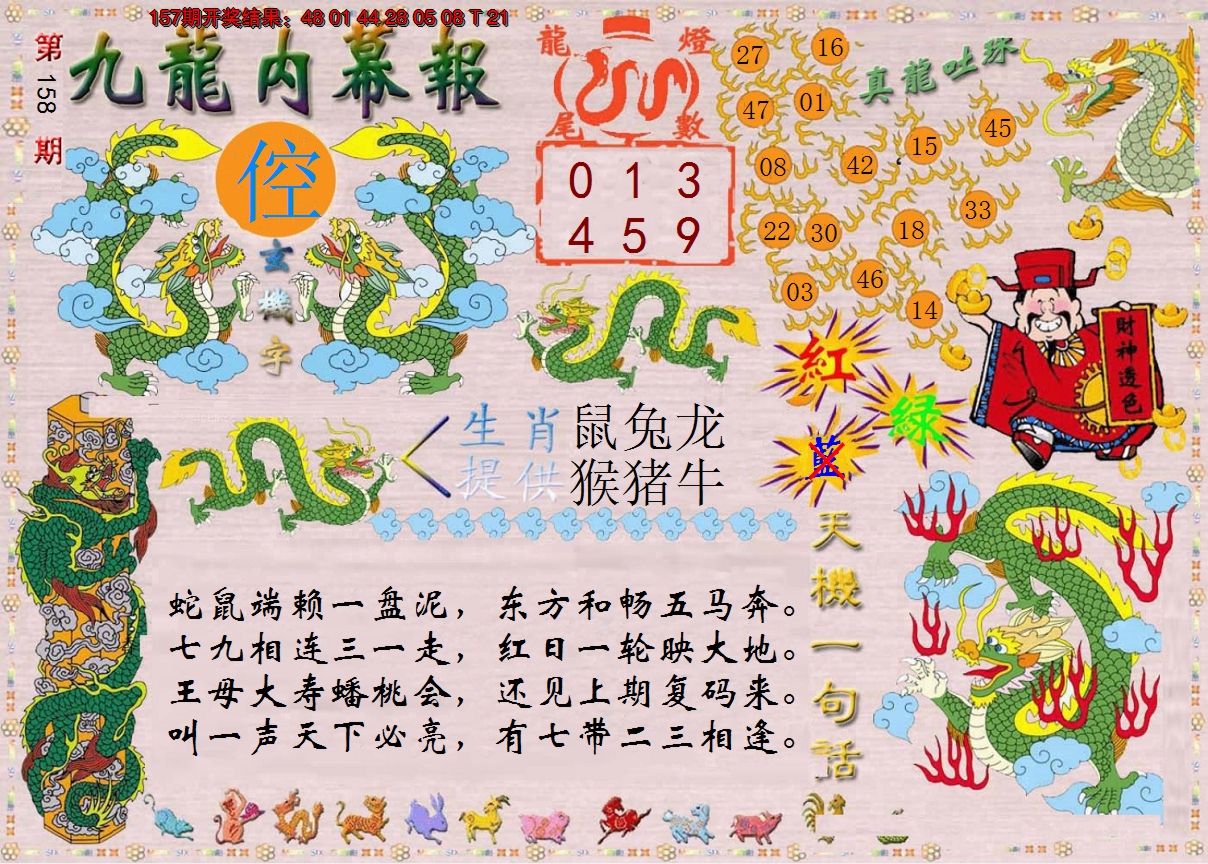 157期开奖结果：48 01 44 28 05 08 T 21
第158期
九龍内幕報
倥
玄機字
龍燈
尾數
0 1 3
4 5 9
真龍吐珠
27 16
47 01
08 42 15 45
22 30 18 33
03 46 14
紅
綠
藍
財神透色
生肖提供
鼠兔龙
猴猪牛
天機一句話
蛇鼠端赖一盘泥，东方和畅五马奔。
七九相连三一走，红日一轮映大地。
王母大寿蟠桃会，还见上期复码来。
叫一声天下必亮，有七带二三相逢。